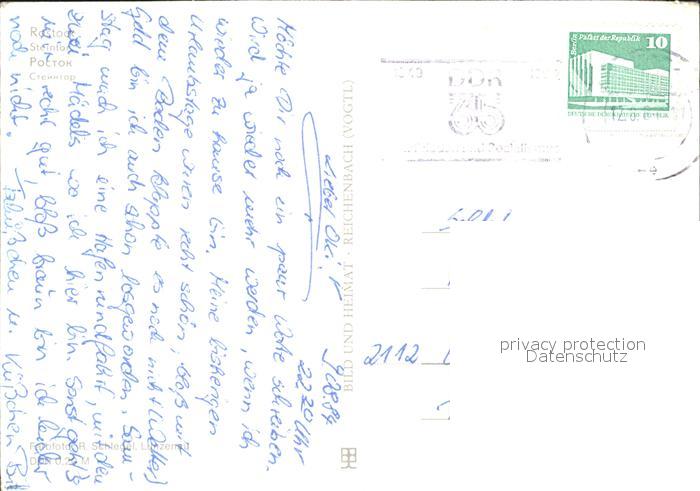 Rostock
Steintor
Росток
Стейнтор
Lieber Ofi!
9.8.84
22 20 Uhr
Möchte Dir noch ein paar Worte schreiben.
Wird ja wieder mehr werden, wenn ich
wieder zu hause bin. Meine bisherigen
Urlaubstage waren recht schön, bloß mit
dem Baden klappte es noch nicht (Wetter)
Geld bin ich auch schon losgeworden. Sonn-
tag mach ich eine Hafenrundfahrt, mit den
zwei Mädels wo ich hier bin. Sonst geht's
mir recht gut, bloß braun bin ich leider
noch nicht. Tschüßchen u. Küßchen
BILD UND HEIMAT · REICHENBACH (VOGTL)
Farbfoto: R. Schlegel,
Berlin Palast der Republik
10
DEUTSCHE DEMOKRATISCHE REPUBLIK
DDR
35
2112
privacy protection
Datenschutz